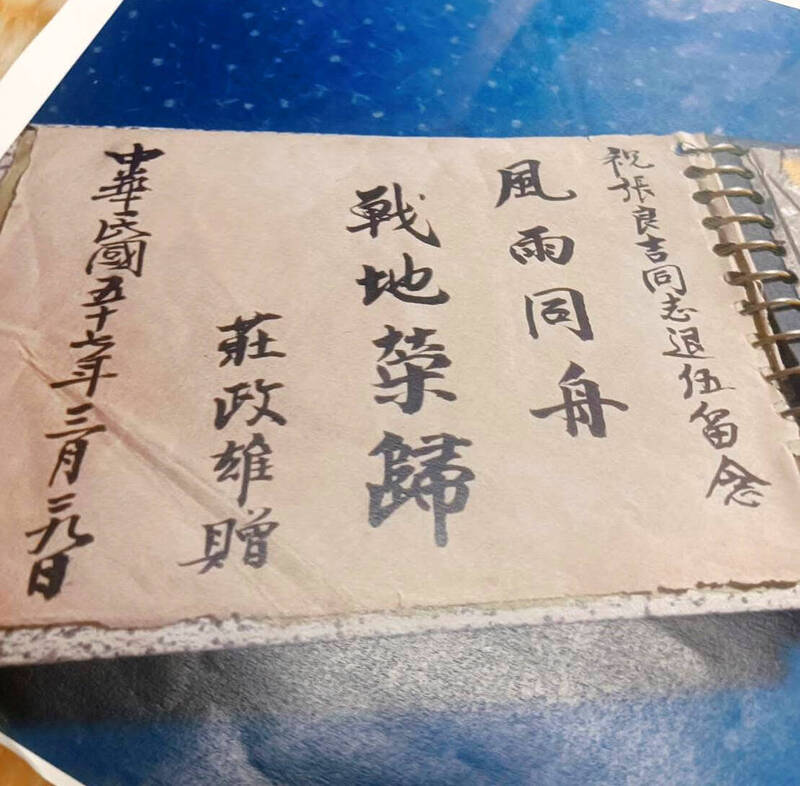 祝張良吉同志退伍留念
風雨同舟
戰地榮歸
莊政雄贈
中華民國五十七年三月二九日